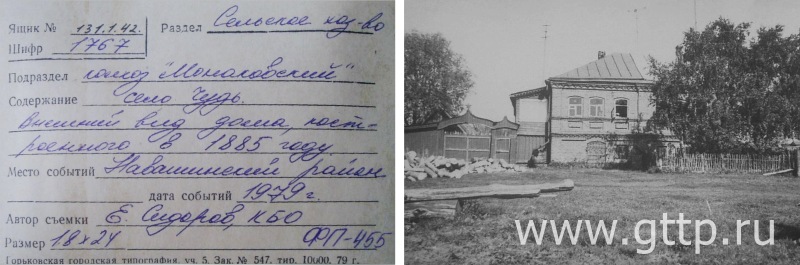 Ящик № 131.1.42. Раздел Сельское хоз-во
Шифр 1767
Подраздел колхоз "Монаковский"
Содержание село Чудь.
Внешний вид дома, пост-
роенного в 1885 году
Место событий Навашинский район
дата событий 1979 г.
Автор съемки Е. Сидоров, КБО
Размер 18х24 ФП-455
Горьковская городская типография, уч. 5. Зак. № 547. тир. 10000. 79 г.
www.gttp.ru